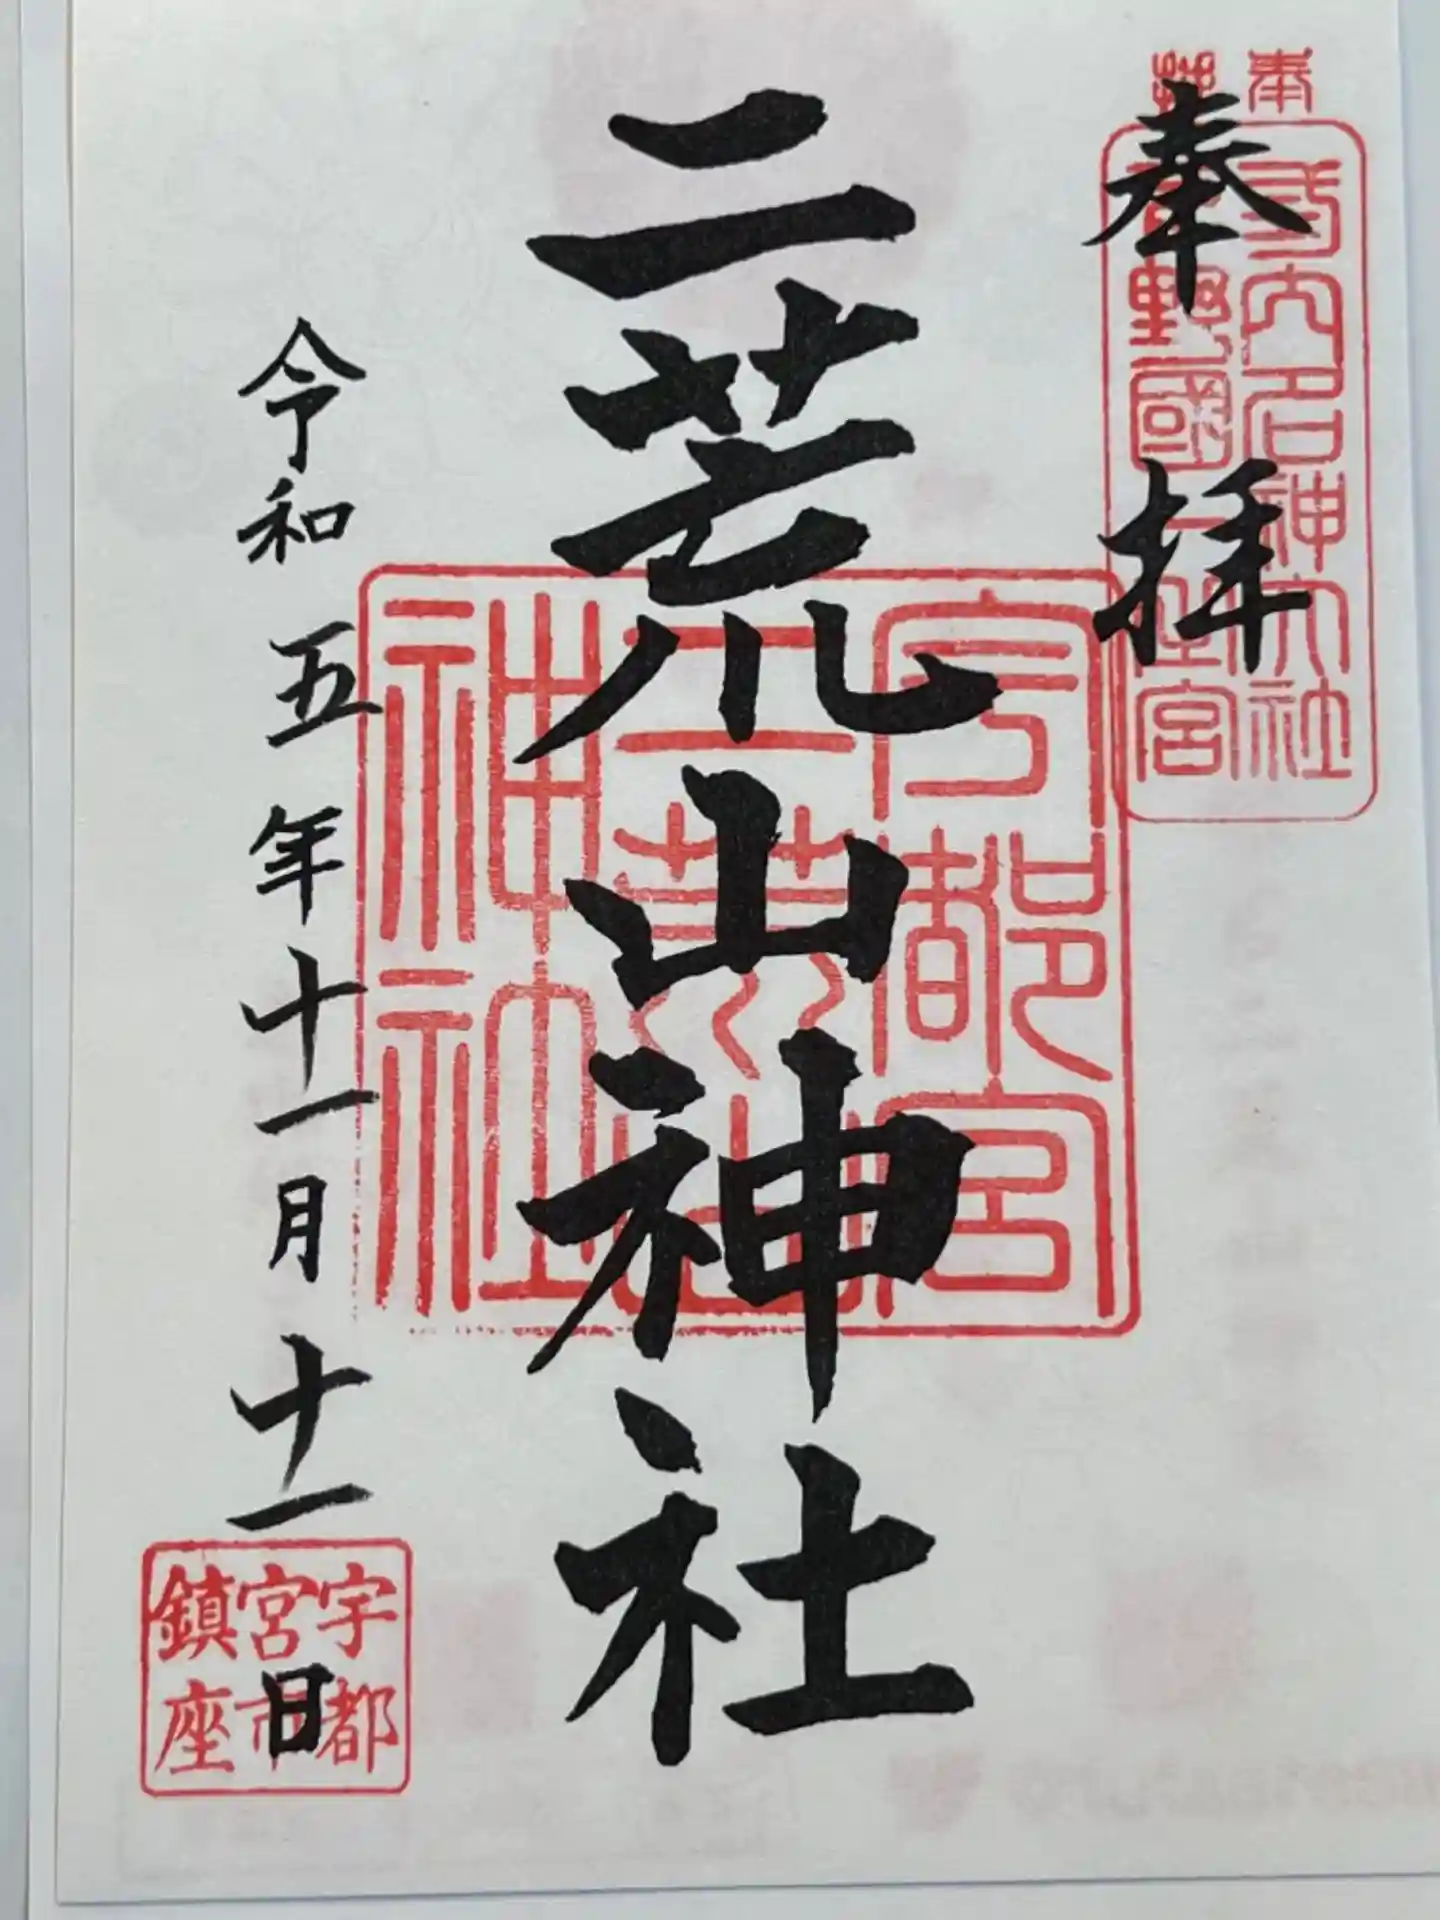 奉拝
式内名神大社
下野國一之宮
奉拝
二荒山神社
宇都宮
二荒山
神社
令和五年十一月十一日
宇都
宮市
鎮座